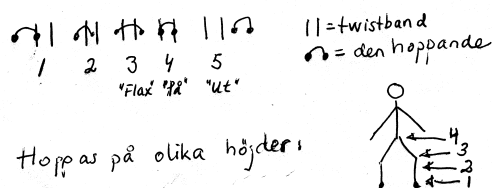 ||=twistband
= den hoppande
1 2 3 4 5
"Flax" "På" "Ut"
Hoppas på olika höjder:
4
3
2
1